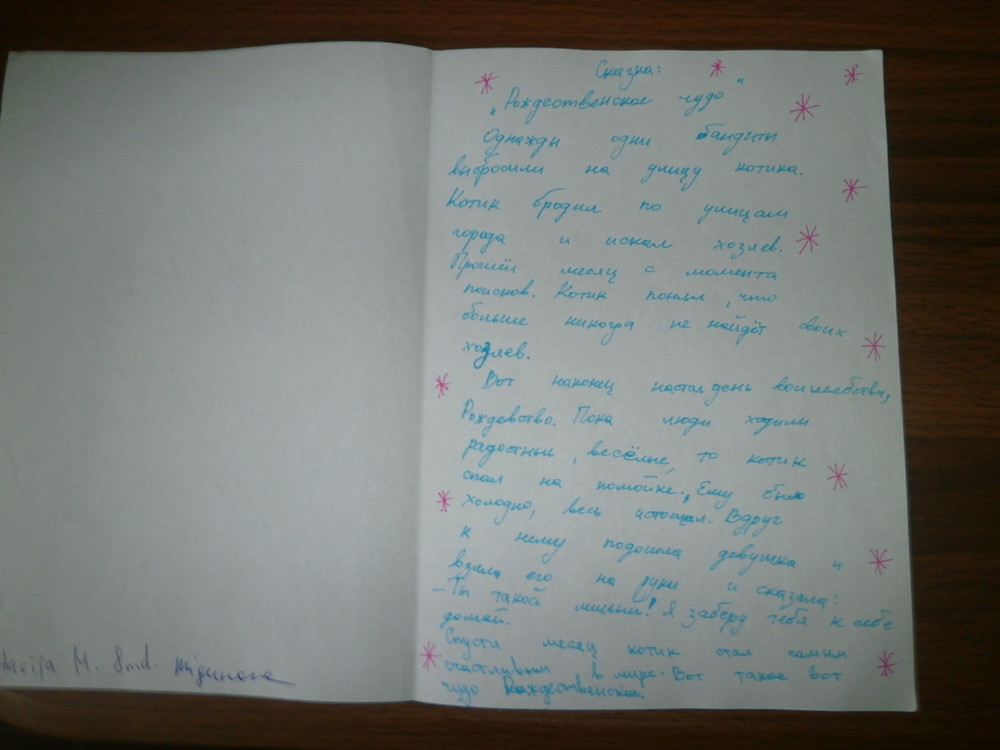 Сказка:
„Рождественское чудо"
Однажды одни бандиты
выбросили на улицу котика.
Котик бродил по улицам
города и искал хозяев.
Прошёл месяц с момента
поисков. Котик понял, что
больше никогда не найдёт своих
хозяев.
Вот наконец настал день волшебства,
Рождевство. Пока люди ходили
радостные, весёлые, то котик
спал на помойке. Ему было
холодно, весь истощал. Вдруг
к нему подошла девушка и
взяла его на руки и сказала:
- Ты такой милый! Я заберу тебя к себе
домой.
Спустя месяц котик стал самым
счастливым в мире. Вот такое вот
чудо Рождественское.
M. 8md.